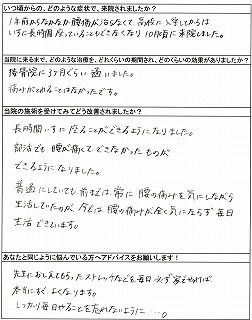 いつ頃からの、どのような症状で、来院されましたか？
1年前からなかなか腰痛が治らなくて高校に入学してからは、
いすに長時間座っていることもできなくなり10月頃に来院しました。
当院に来るまで、どのような治療を、どれくらいの期間され、どのくらいの効果がありましたか？
接骨院に3ヶ月ぐらい通いました。
痛みがとれることはなかったです。
当院の施術を受けてみてどう改善されましたか？
長時間いすに座ることができるようになりました。
部活でも腰が痛くてできなかったものが
できるようになりました。
普通にしていても前までは、常に腰の痛みを気にしながら
生活していたのが今では腰の痛みが全く気にならず毎日
生活できています。
あなたと同じように悩んでいる方へアドバイスをお願いします！
先生におしえてもらったストレッチなどを毎日必ず家でやれば、
本当にすぐよくなります。
しっかり毎日やることを忘れないように…。